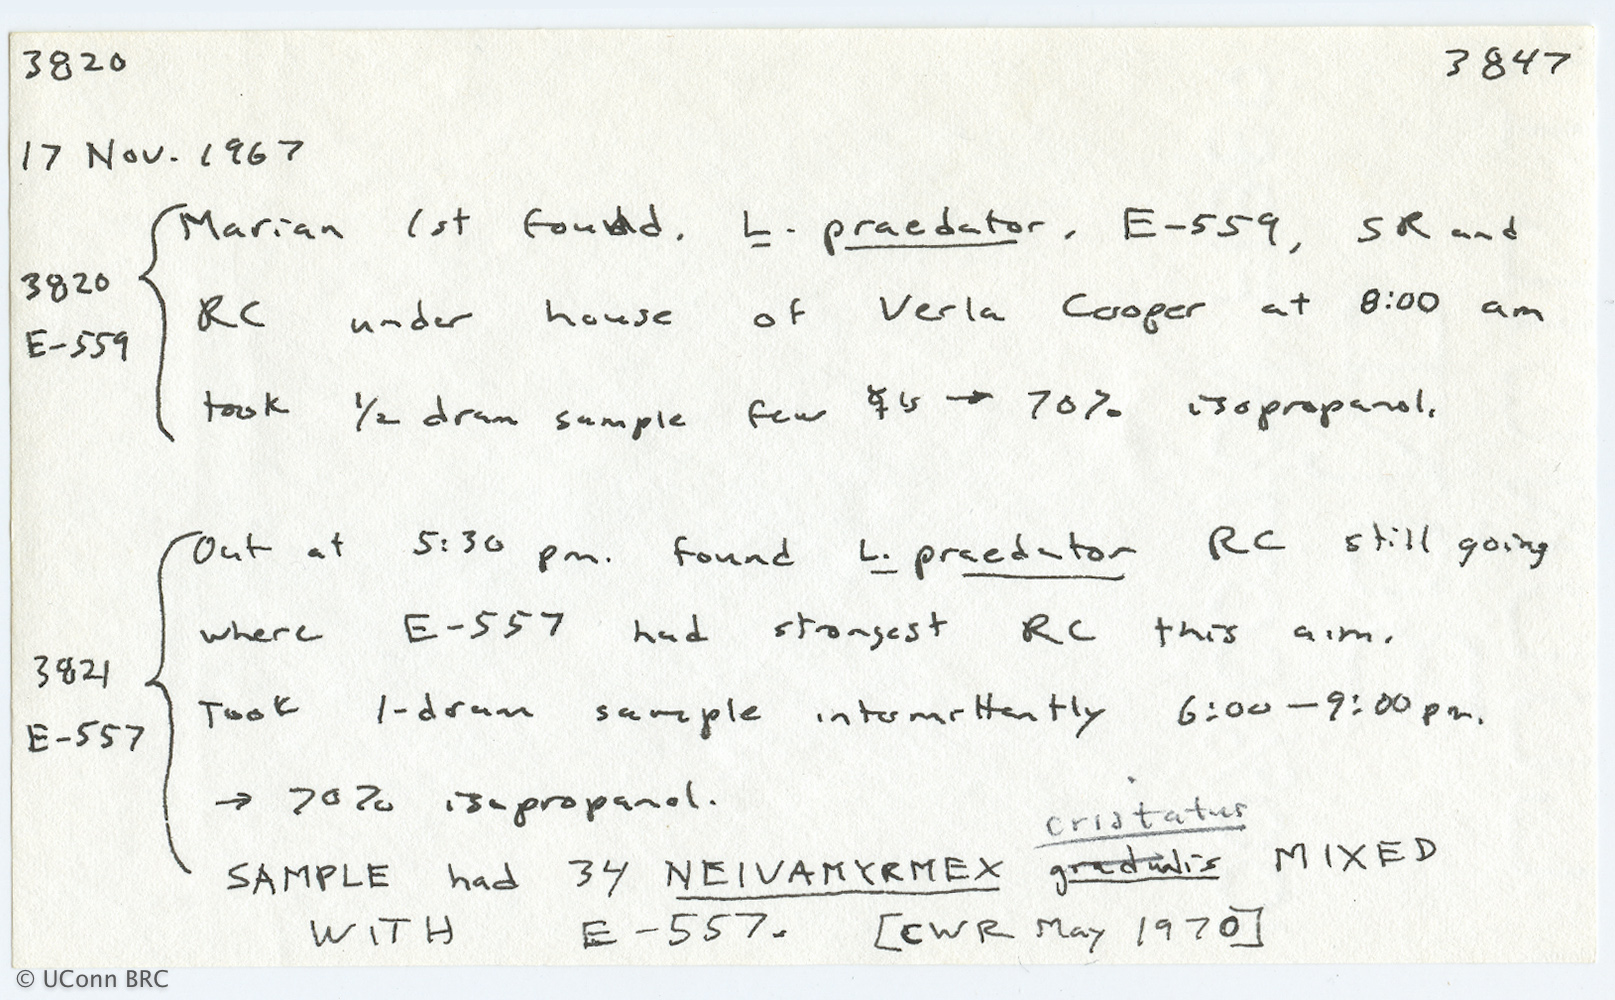 3820 3847
17 Nov. 1967
Marian 1st found. L. praedator. E-559, SR and
3820 RC under house of Verla Cooper at 8:00 am
E-559
took 1/2 dram sample few → 70% isopropanol.
Out at 5:30 pm. found L. praedator RC still going
where E-557 had strongest RC this a.m.
3821
Took 1-dram sample intermittently 6:00 — 9:00 pm.
E-557
→ 70% isopropanol.
cristatus
SAMPLE had 34 NEIVAMYRMEX gradualis MIXED
WITH E-557. [CWR May 1970]
© UConn BRC